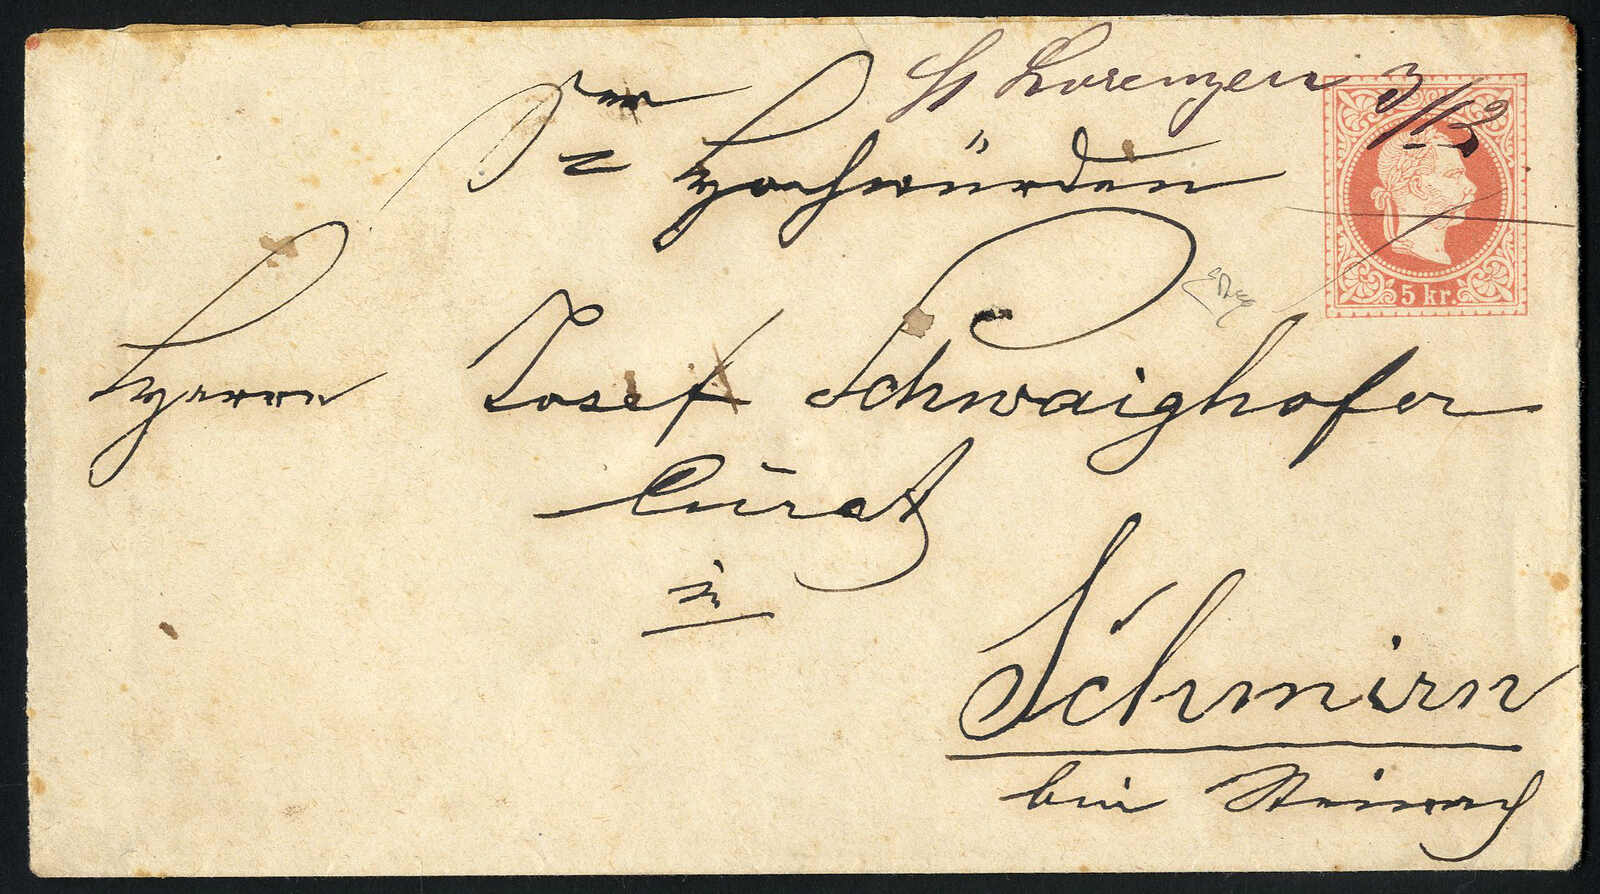 St Lorenzen 3/12
Sr Hochwürden
5 kr.
Herrn Josef Schwaighofer
Curat
in
Schmirn
bei Steinach